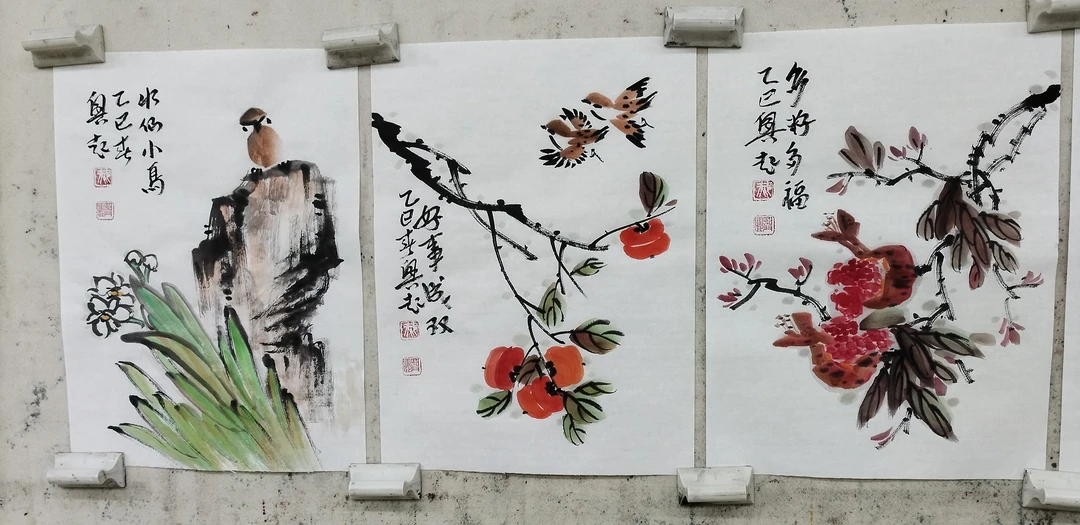 水仙小鳥
乙巳春
興起
好事成双
乙巳春興起
多籽多福
乙巳興起